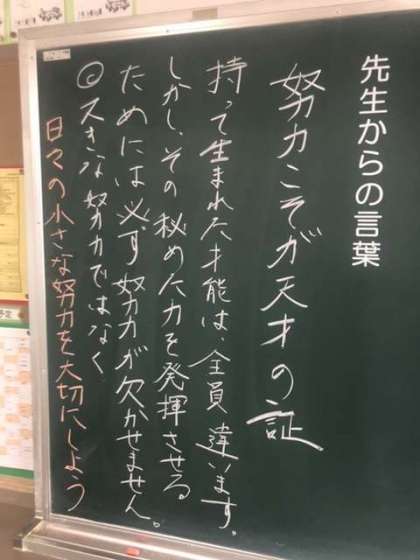 先生からの言葉
努力こそが天才の証
持って生まれた才能は、全員違います。
しかし、その秘めた力を発揮させる
ためには必ず努力が欠かせません。
◎大きな努力ではなく
日々の小さな努力を大切にしよう
予定